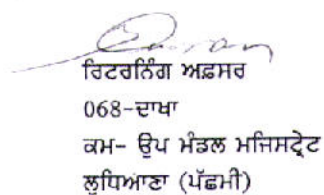 ਰਿਟਰਨਿੰਗ ਅਫ਼ਸਰ
068-ਦਾਖਾ
ਕਮ- ਉਪ ਮੰਡਲ ਮਜਿਸਟ੍ਰੇਟ
ਲੁਧਿਆਣਾ (ਪੱਛਮੀ)